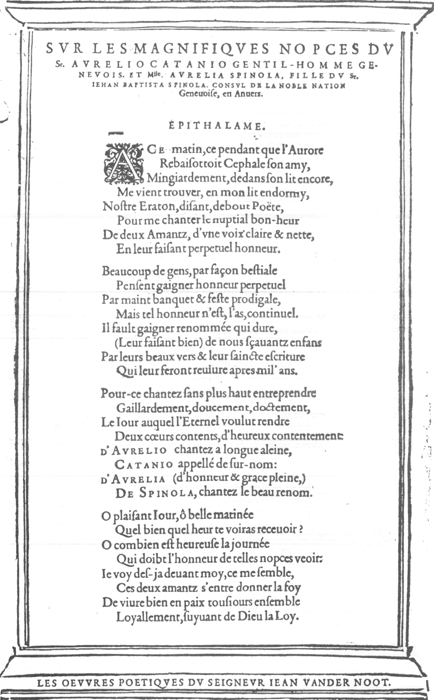 SVR LES MAGNIFIQVES NOPCES DV
Sr. AVRELIO CATANIO GENTIL-HOMME GE-
NEVOIS. ET Mlle. AVRELIA SPINOLA, FILLE DV Sr.
IEHAN BAPTISTA SPINOLA, CONSVL DE LA NOBLE NATION
Geneuoise, en Anuers.
ÉPITHALAME.
A CE matin, ce pendant que l'Aurore
Rebaisottoit Cephale son amy,
Mingiardement, dedans son lit encore,
Me vient trouuer, en mon lit endormy,
Nostre Eraton, disant, debout Poëte,
Pour me chanter le nuptial bon-heur
De deux Amantz, d'vne voix claire & nette,
En leur faisant perpetuel honneur.
Beaucoup de gens, par façon bestiale
Pensent gaigner honneur perpetuel
Par maint banquet & feste prodigale,
Mais tel honneur n'est, l'as, continuel.
Il fault gaigner renommée qui dure,
(Leur faisant bien) de nous sçauantz enfans
Par leurs beaux vers & leur saincte escriture
Qui leur feront reuiure apres mil' ans.
Pour-ce chantez sans plus haut entreprendre
Gaillardement, doucement, doctement,
Le Iour auquel l'Eternel voulut rendre
Deux cœurs contents, d'heureux contentement:
D'AVRELIO chantez a longue aleine,
CATANIO appellé de sur-nom:
D'AVRELIA (d'honneur & grace pleine,)
DE SPINOLA, chantez le beau renom.
O plaisant Iour, ô belle matinée
Quel bien quel heur te voiras receuoir?
O combien est heureuse la journée
Qui doibt l'honneur de telles nopces veoir:
Ie voy des-ja deuant moy, ce me semble,
Ces deux amantz s'entre donner la foy
De viure bien en paix tousiours ensemble
Loyallement, suyuant de Dieu la Loy.
LES OEVVRES POETIQVES DV SEIGNEVR IEAN VANDER NOOT.